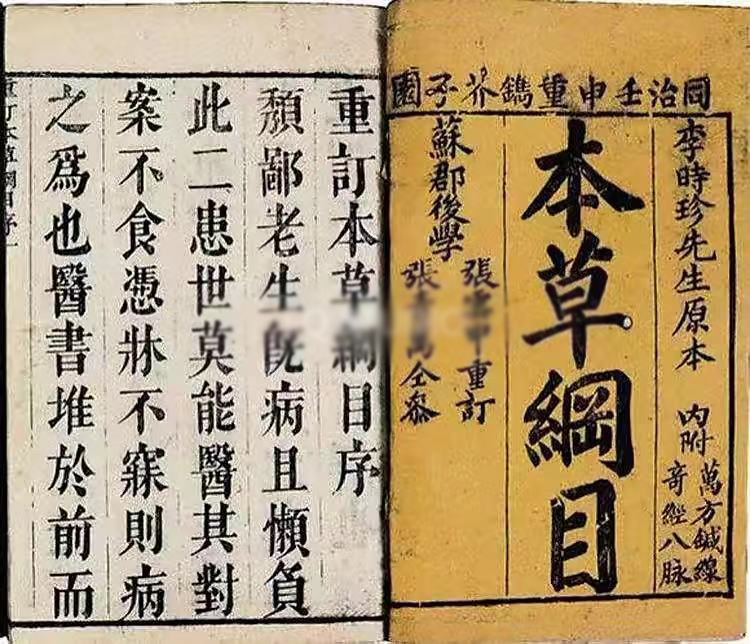 同治壬申重鐫芥子園
李時珍先生原本 内附
萬方鍼線
奇經八脉
本草綱目
蘇郡後學
張重訂
張萬仝叅
重訂本草綱目序
頽鄙老生旣病且懶負
此二患世莫能醫其對
案不食憑牀不寐則病
之爲也醫書堆於前而